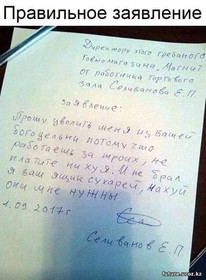 Правильное заявление
Директору этого гребаного
говномагазина, Магнит
от работника торгового
зала Селиванова Е.П
Заявление:
Прошу уволить меня из вашей
богодельни потому что
работаешь за троих, не
платите ни хуя. И не брал
я ваш ящик сухарей, нахуй
они мне нужны
1.09.2017г.
Селиванов Е.П